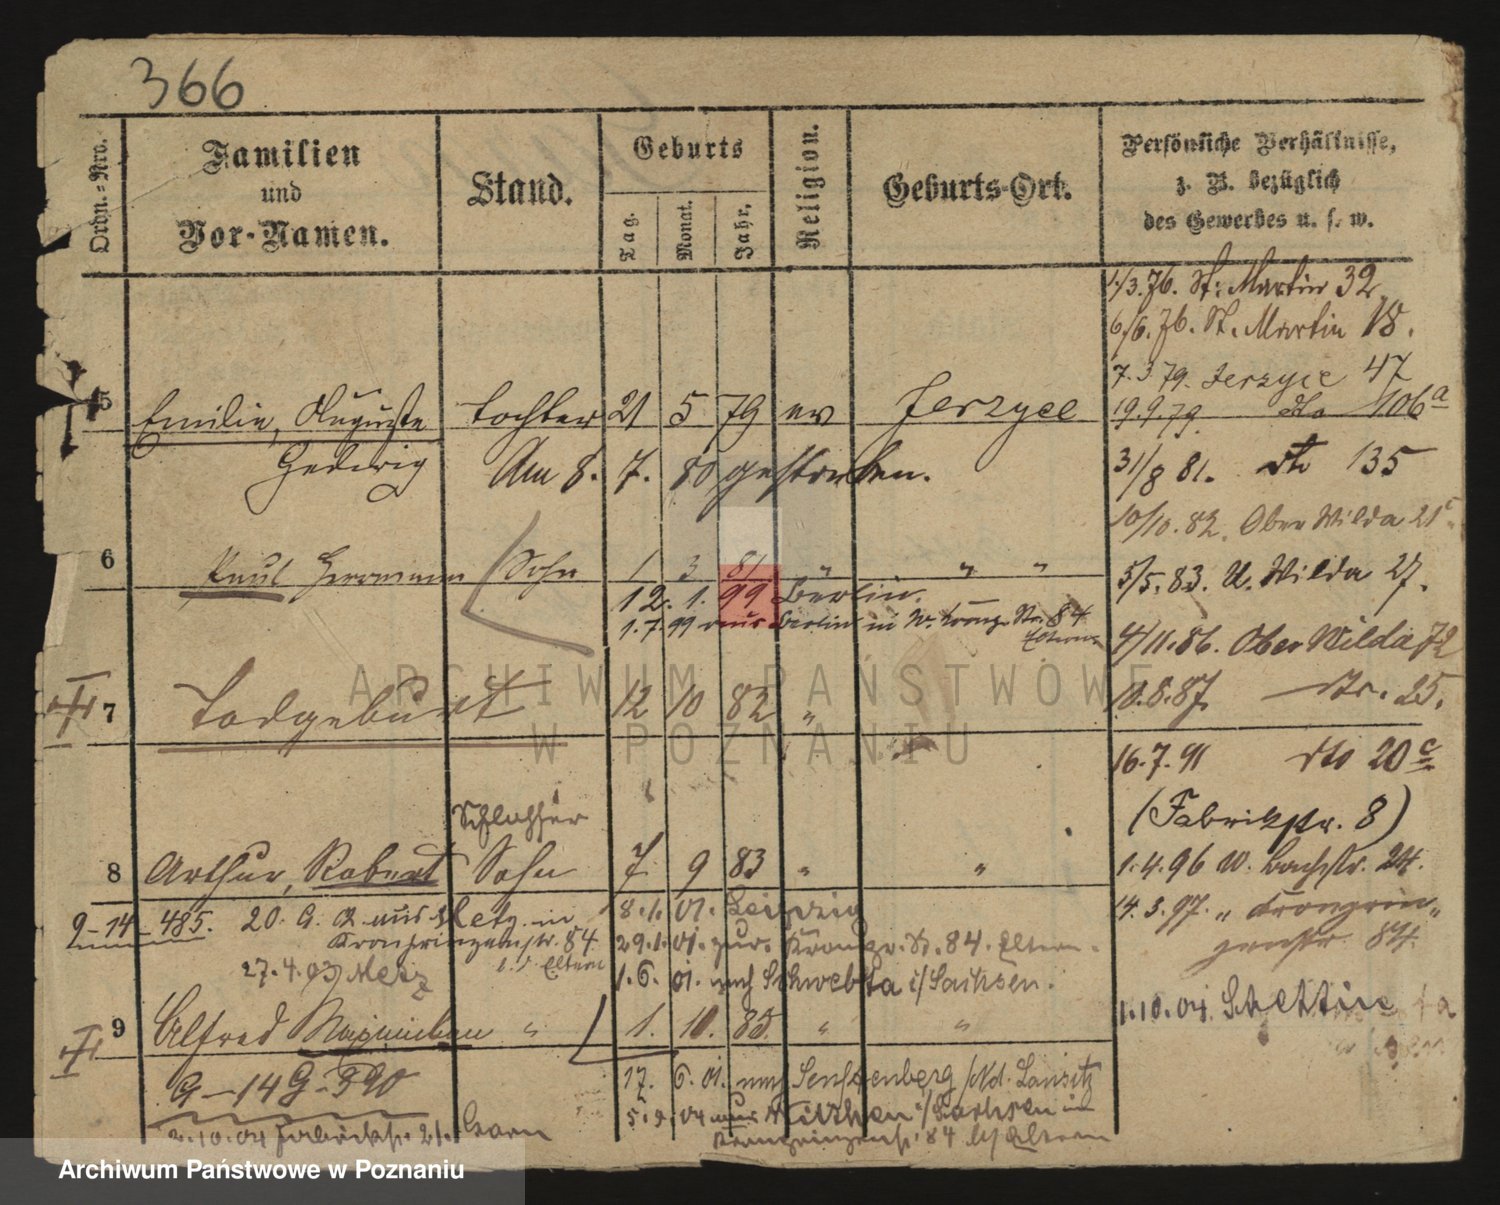 366
Ordn.-Nro.
Familien
und
Vor-Namen.
Stand.
Geburts
Tag.
Monat.
Jahr.
Religion.
Geburts-Ort.
Persönliche Verhältnisse,
z. B. bezüglich
des Gewerbes u. s. w.
1/3.76. St. Martin 32
6/6.76. St. Martin 18.
7.3.79. Jerzyce 47
19.9.79. dto 106a
31/8 81. dto 135
10/10.82. Ober Wilda 21c
5/5.83. U. Wilda 27.
4/11.86. Ober Wilda 72
10.8.87. dto. 25.
16.7.91 dto 20c
(Fabrikstr. 8)
1.4.96 W. Bachstr. 24.
14.3.97. " Kronprin-
zenstr. 84.
1.10.04. Stettin
5 Emilie, Auguste Tochter 21 5 79 ev Jerzyce
Hedwig Am 8. 7. 80 gestorben.
6 Paul Herrmann Sohn 1 3 81 " " "
12. 1. 99 Berlin.
1.7.99 aus Berlin in W. Kronpr. Str. 84
Eltern
7 Todgeburt 12 10 82 "
Schlosser
8 Arthur, Robert Sohn 7 9 83 " "
9-14-485. 20. 9. 02 aus Metz in
Kronprinzenstr. 84
b. d. Eltern
27.4.03 Metz
8.1.01. Leipzig
29.1.01. zur. Kronpr. St. 84. Eltern.
1.6. 01. nach Schwebta i/Sachsen.
9 Alfred Maximilian " 1. 10. 85 " "
G-14 G-590
17. 6. 01. nach Senftenberg /Nd. Lausitz
5.9.04 aus i/Sachsen in
Kronprinzenstr. 84 b/ Eltern
2.10.04 Fabrikstr. 21.
ARCHIWUM PAŃSTWOWE
W POZNANIU
Archiwum Państwowe w Poznaniu